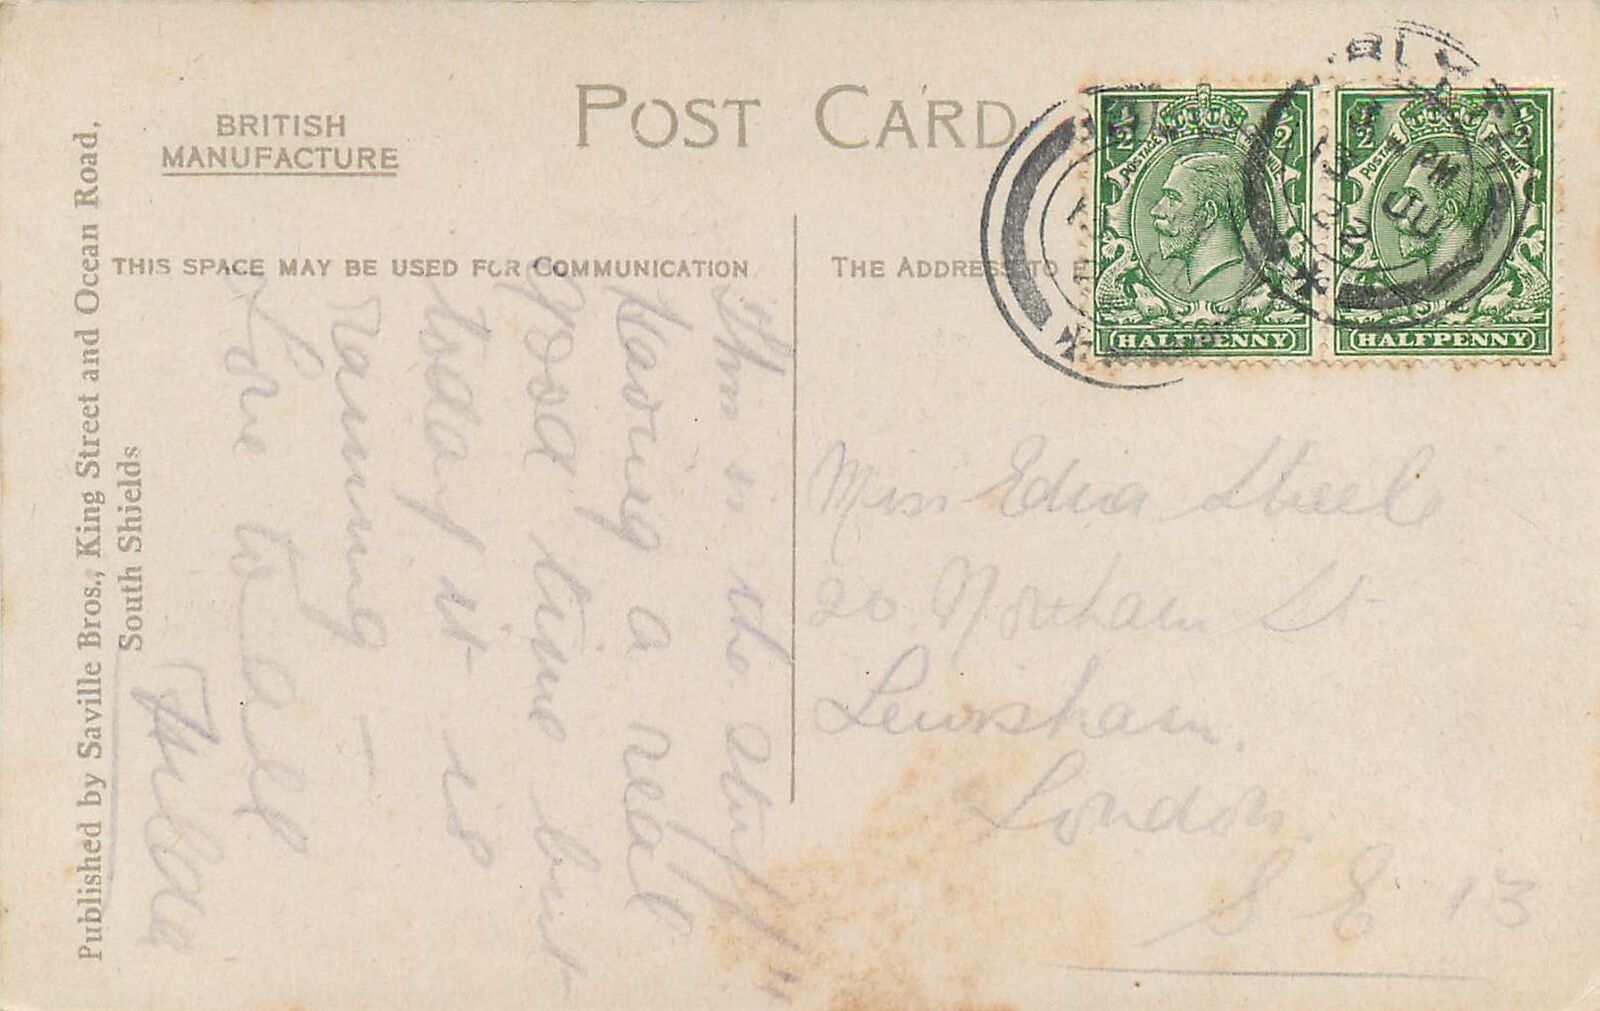 POST CARD
BRITISH
MANUFACTURE
THIS SPACE MAY BE USED FOR COMMUNICATION
THE ADDRESS TO
Published by Saville Bros., King Street and Ocean Road,
South Shields
This is the stuff"
Having a real
good time but
today it is
raining —
Love to all
Hilda
Miss Edna Steele
20 Northam St
Lewisham.
London.
S E 13
1/2 1/2
POSTAGE REVENUE
HALFPENNY
1/2 1/2
POSTAGE REVENUE
HALFPENNY
BLYTH
PM
JU
22